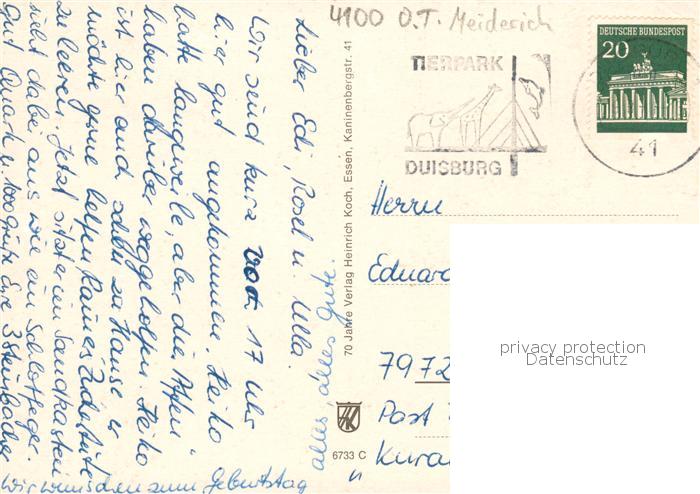 4100 O.T. Meiderich
TIERPARK
DUISBURG
DEUTSCHE BUNDESPOST
20
41
Lieber Edi, Rosel u. Ulla.
Wir sind kurz vor 17 Uhr
hier gut angekommen. Heiko
hatte Langweile, aber die Affen
haben darüber weggeholfen. Heiko
ist hier und schon zu Hause er
möchte gerne helfen Raines
zu leeren. Jetzt sitzt er im Sandkasten
sieht dabei aus wie ein Schlotfeger.
gut Quark u. 1000 Grüße Eure 3 Steinbacher
Wir wünschen zum Geburtstag
alles alles Gute.
70 Jahre Verlag Heinrich Koch, Essen, Kaninenbergstr. 41
HK
6733 C
Herrn
Eduard
7972
Post
"Kura
privacy protection
Datenschutz